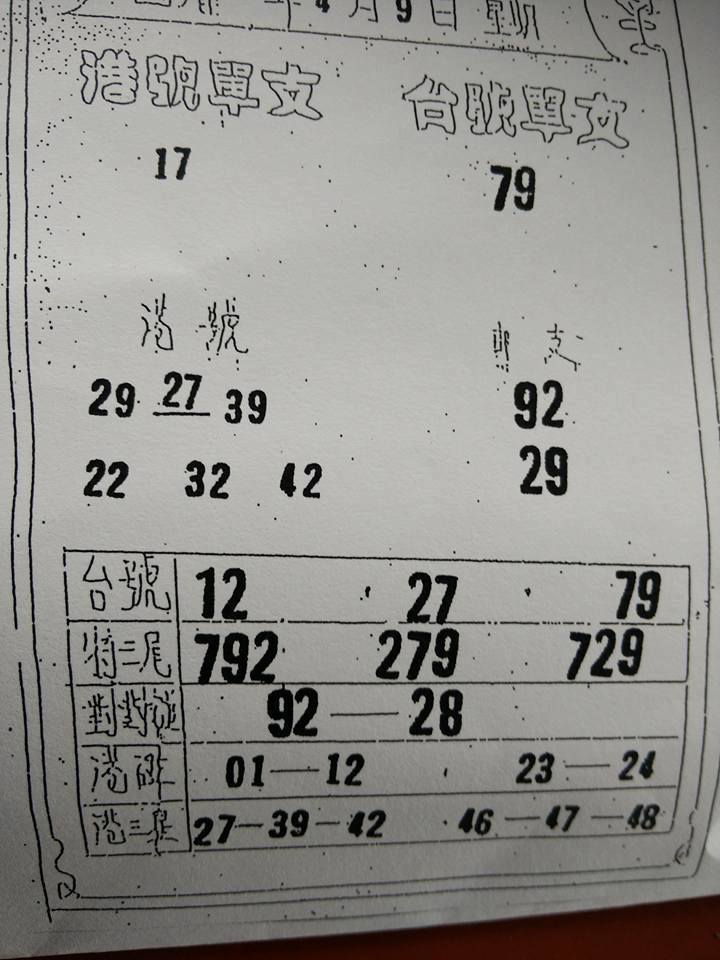 4月9日
港號單支 台號單支
17 79
港號 單支
29 27 39 92
22 32 42 29
台號 12 27 79
特三尾 792 279 729
對對碰 92—28
港碰 01—12 23—24
港三星 27—39—42 46—47—48